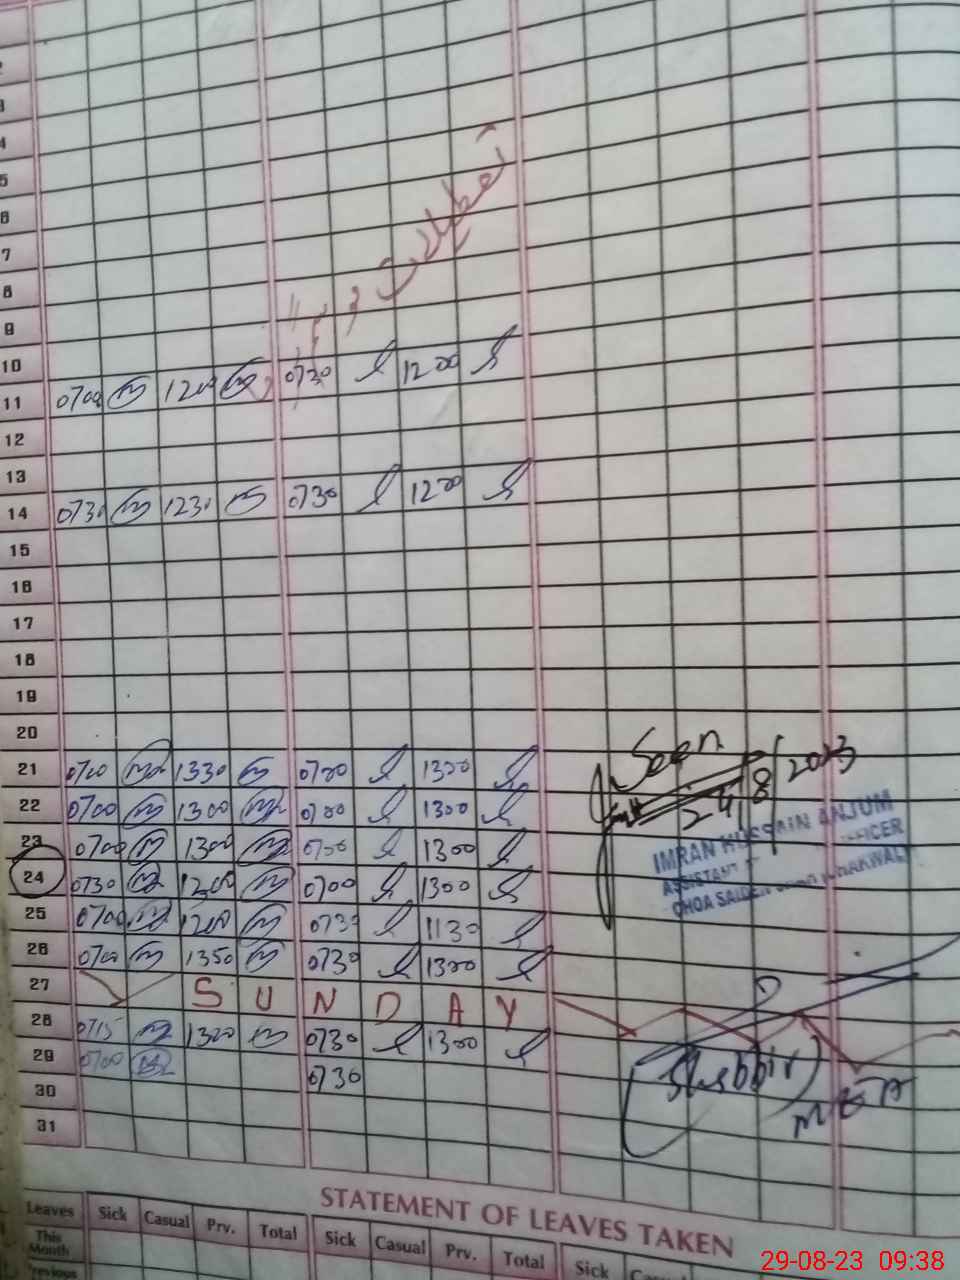 2
3
4
5
6
7
8
9
تعطیلات
10
11 0700 1200 0730 1200
12
13
14 0730 1230 0730 1200
15
16
17
18
19
20
21 0700 1330 0700 1300
22 0700 1300 0700 1300
23 0700 1300 0700 1300
24 0730 1200 0700 1300
25 0700 1200 0730 1130
26 0700 1350 0730 1300
27 SUNDAY
28 0715 1300 0730 1300
29 0700 0730
30
31
Seen
24/8/2023
IMRAN HUSSAIN ANJUM
ASSISTANT
CHOA SAIDEN CHAKWAL
(Shabbir)
MEA
STATEMENT OF LEAVES TAKEN
Leaves Sick Casual Prv. Total Sick Casual Prv. Total Sick Casual
This Month
Previous
29-08-23 09:38